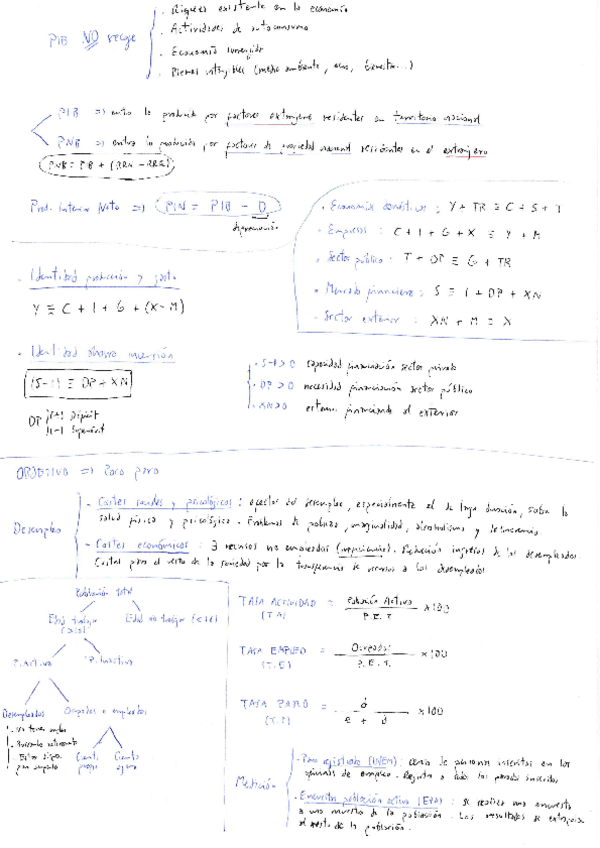 . Riqueza existente en la economía
PIB NO recoge
. Actividades de autoconsumo
. Economía sumergida
. Bienes intangibles (medio ambiente, ocio, bienestar...)
PIB => entra lo producido por factores extranjeros residentes en territorio nacional
PNB => entra lo producido por factores de propiedad nacional residentes en el extranjero
PNB = PIB + (RRN - RRE)
Prod. Interior Neto => PIN = PIB - D
depreciación
. Economías domésticas: Y + TR ≡ C + S + T
. Empresas: C + I + G + X ≡ Y + M
. Sector público: T + DP ≡ G + TR
. Mercado financiero: S ≡ I + DP + XN
. Sector exterior: XN + M ≡ X
. Identidad producción y gasto
Y ≡ C + I + G + (X-M)
. Identidad ahorro inversión
(S-I) ≡ DP + XN
DP (+) Déficit
(-) Superávit
. S-I>0 capacidad financiación sector privado
. DP>0 necesidad financiación sector público
. XN>0 estamos financiando al exterior
OBJETIVO => Paro
Desempleo
- Costes sociales y psicológicos: efectos del desempleo, especialmente el de larga duración, sobre la
salud física y psicológica. Problemas de pobreza, marginalidad, alcoholismo y delincuencia
- Costes económicos: ∃ recursos no empleados (ineficiencia). Reducción ingresos de los desempleados
Costes para el resto de la sociedad por la transferencia de recursos a los desempleados
Población total
Edad trabajar (>16)
Edad no trabajar (<16)
P. activa
P. Inactiva
Desempleados
Ocupados o empleados
. No tener empleo
. Buscando activamente
. Estar disp.
para empleo
Cuenta propia
Cuenta ajena
TASA ACTIVIDAD (T.A) = Población Activa / P.E.T. x100
TASA EMPLEO (T.E) = Ocupados / P.E.T. x100
TASA PARO = d / e + d x100
Medición
- Paro registrado (INEM): censo de personas inscritas en las
oficinas de empleo. Registra a todos los parados inscritos
- Encuesta población activa (EPA): se realiza una encuesta
a una muestra de la población. Los resultados se extrapolan
al resto de la población.